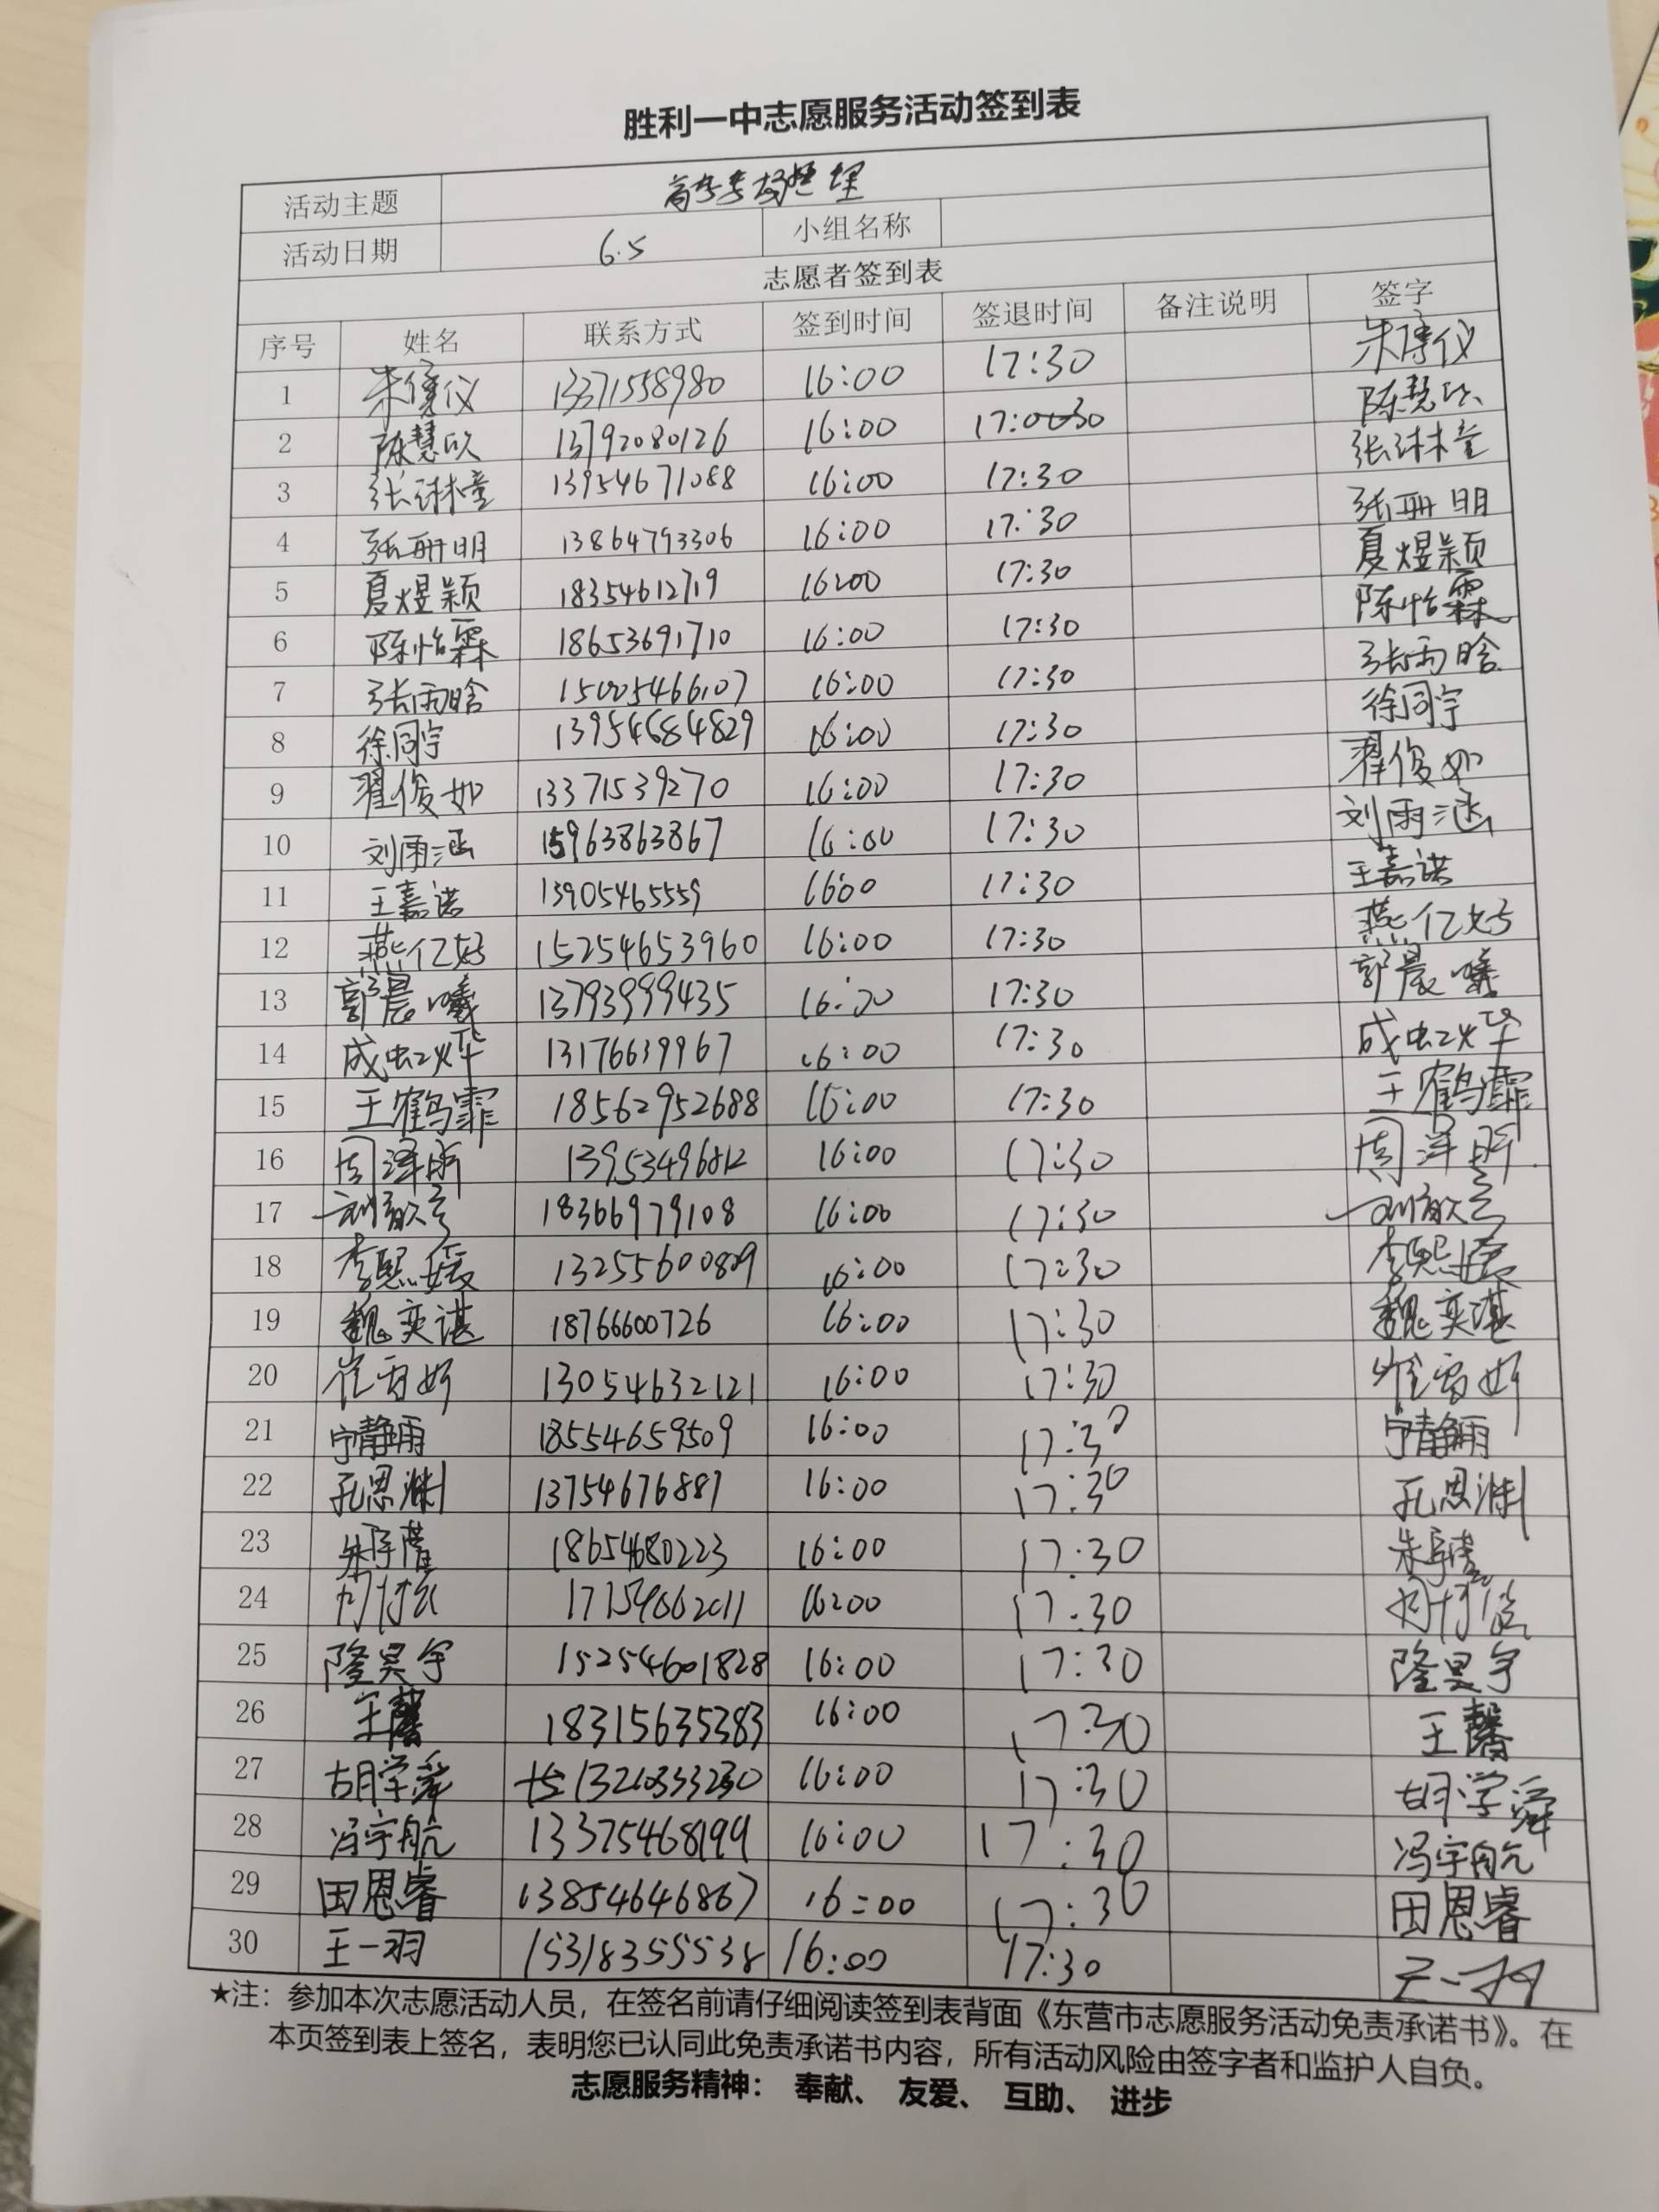 胜利一中志愿服务活动签到表
活动主题 高考考场整理
活动日期 6.5 小组名称
志愿者签到表
序号 姓名 联系方式 签到时间 签退时间 备注说明 签字
1 朱倩仪 13371558980 16:00 17:30 朱倩仪
2 陈慧欣 13792080126 16:00 17:30 陈慧欣
3 张琳童 13954671088 16:00 17:30 张琳童
4 张珊明 13864793306 16:00 17:30 张珊明
5 夏煜颖 18354612719 16:00 17:30 夏煜颖
6 陈怡霖 18653691710 16:00 17:30 陈怡霖
7 张雨晗 15005466107 16:00 17:30 张雨晗
8 徐同宇 13954684829 16:00 17:30 徐同宇
9 翟俊如 13371539270 16:00 17:30 翟俊如
10 刘雨涵 15963863867 16:00 17:30 刘雨涵
11 王嘉诺 13905465559 16:00 17:30 王嘉诺
12 燕亿好 15254653960 16:00 17:30 燕亿好
13 郭晨曦 13793999435 16:00 17:30 郭晨曦
14 成虹烨 13176639967 16:00 17:30 成虹烨
15 王鹤霏 18562952688 16:00 17:30 王鹤霏
16 周泽昕 13953496812 16:00 17:30 周泽昕
17 18366979108 16:00 17:30
18 李熙媛 13255600809 16:00 17:30 李熙媛
19 魏奕谌 18766600726 16:00 17:30 魏奕谌
20 崔雪妍 13054632121 16:00 17:30 崔雪妍
21 宁静雨 18554659509 16:00 17:30 宁静雨
22 孔思渊 13754676887 16:00 17:30 孔思渊
23 朱宇萱 18654680223 16:00 17:30 朱宇萱
24 16:00 17:30
25 隆昊宇 15254601828 16:00 17:30 隆昊宇
26 王馨 18315635383 16:00 17:30 王馨
27 胡学舜 16:00 17:30 胡学舜
28 冯宇航 13375468199 16:00 17:30 冯宇航
29 田恩睿 13854646867 16:00 17:30 田恩睿
30 王一羽 15318355538 16:00 17:30 王一羽
★注：参加本次志愿活动人员，在签名前请仔细阅读签到表背面《东营市志愿服务活动免责承诺书》。在
本页签到表上签名，表明您已认同此免责承诺书内容，所有活动风险由签字者和监护人自负。
志愿服务精神： 奉献、 友爱、 互助、 进步